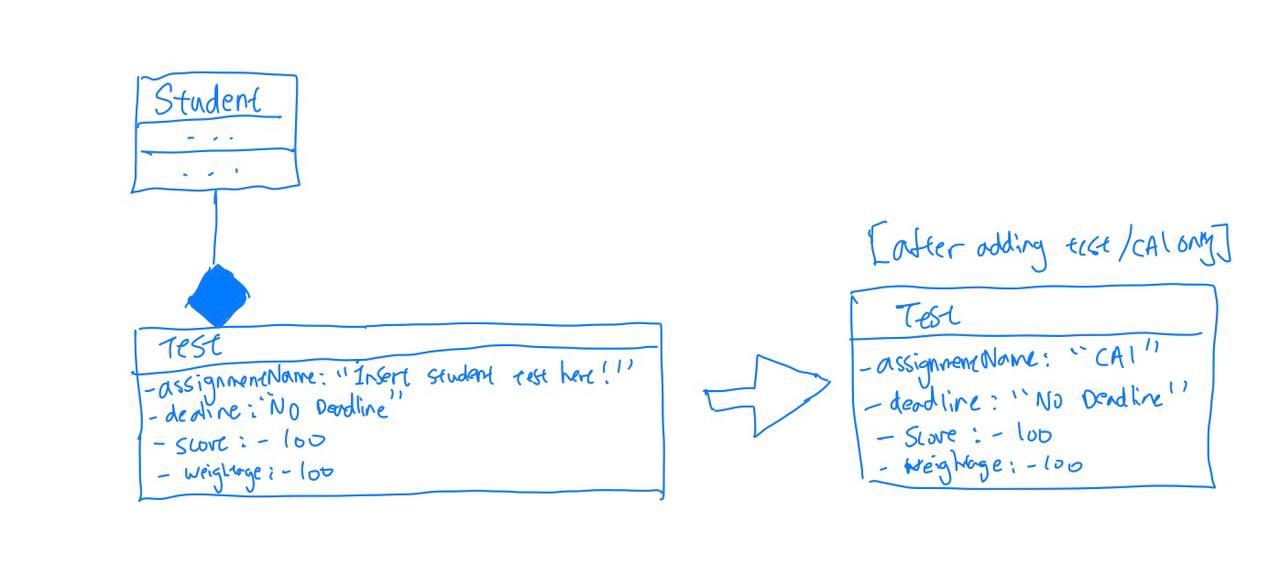 Student
- ..
. . .
Test
-assignmentName: "Insert student test here!"
- dealine: "No Deadline"
- score : - 100
- weightage: - 100
[after adding test/CA1 only]
Test
- assignmentName: "CA1"
- deadline : "No Deadline"
- Score : - 100
- weightage: -100